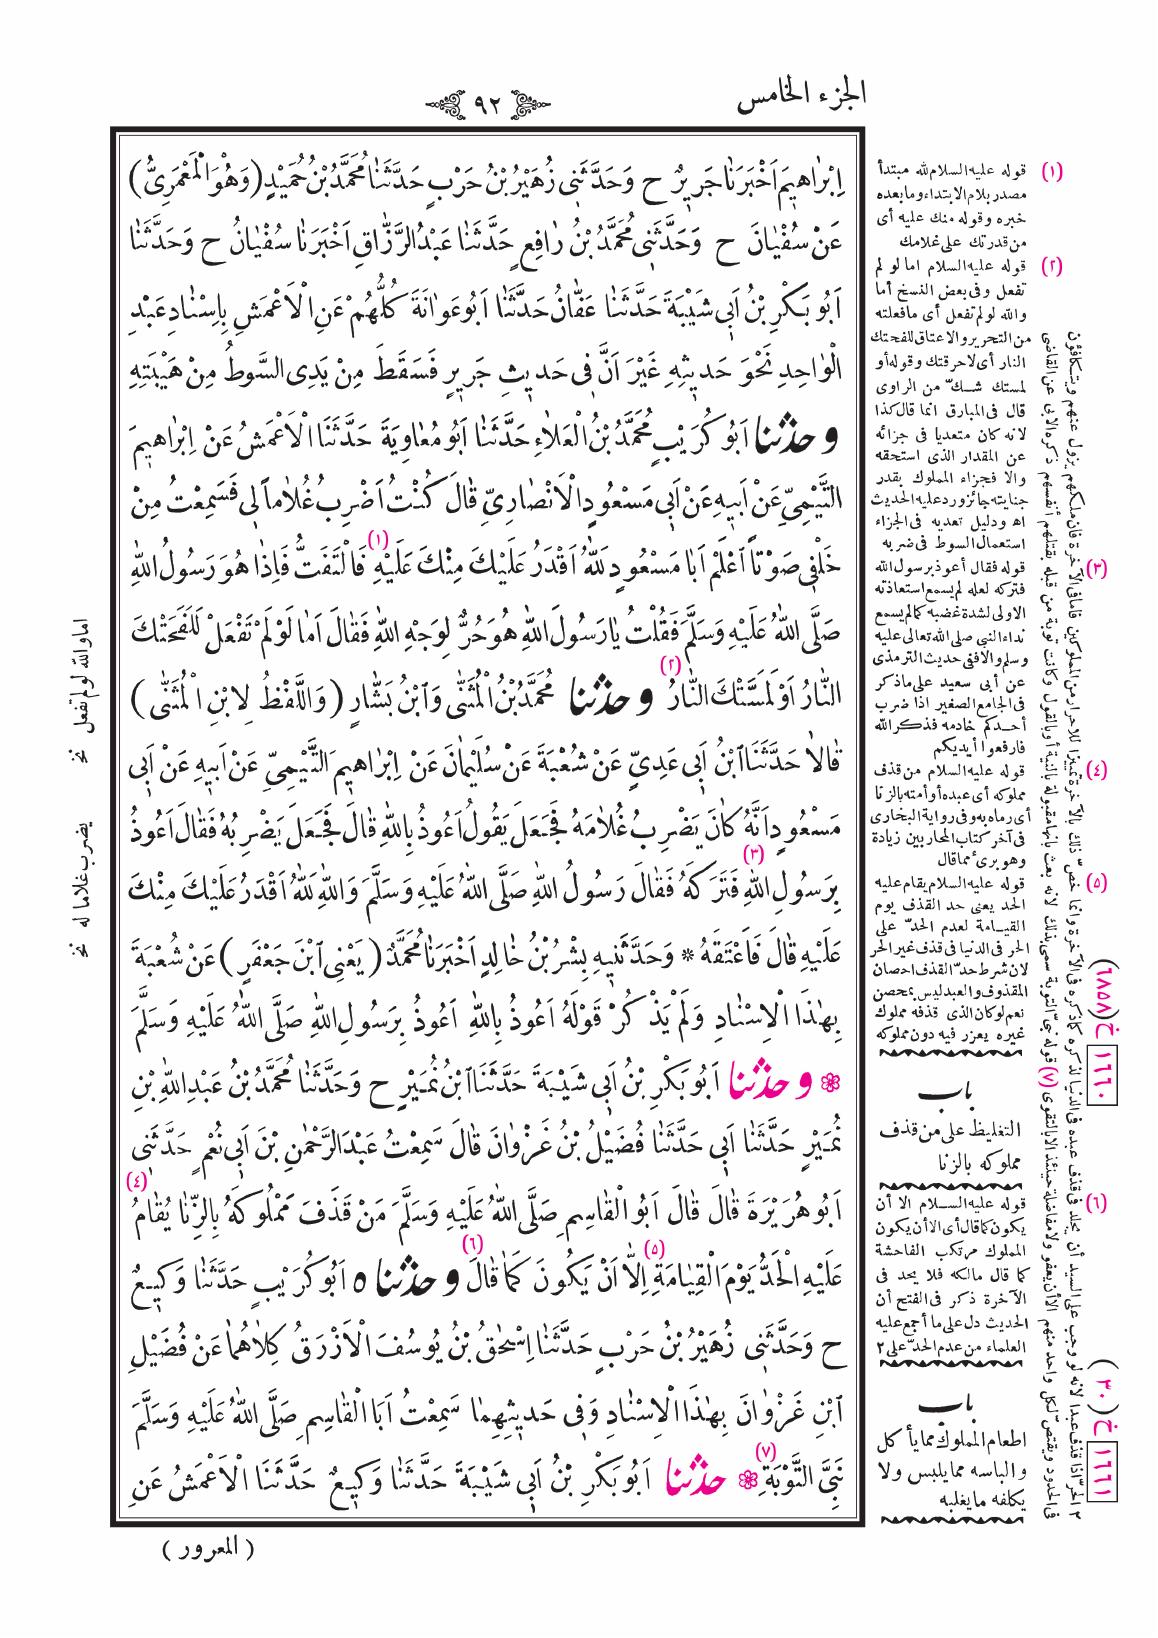 الجزء الخامس
٩٢
اِبْرٰاهِيمَ اَخْبَرَنَا جَرِيرٌ ح وَحَدَّثَنِى زُهَيْرُ بْنُ حَرْبٍ حَدَّثَنَا مُحَمَّدُ بْنُ حُمَيْدٍ (وَهُوَ الْمَعْمَرِىُّ)
عَنْ سُفْيَانَ ح وَحَدَّثَنِى مُحَمَّدُ بْنُ رَافِعٍ حَدَّثَنَا عَبْدُ الرَّزَّاقِ اَخْبَرَنَا سُفْيَانُ ح وَحَدَّثَنَا
اَبُو بَكْرِ بْنُ اَبِى شَيْبَةَ حَدَّثَنَا عَفَّانُ حَدَّثَنَا اَبُو عَوَانَةَ كُلُّهُمْ عَنِ الْاَعْمَشِ بِاِسْنَادِ عَبْدِ
الْوٰاحِدِ نَحْوَ حَدِيثِهِ غَيْرَ اَنَّ فِى حَدِيثِ جَرِيرٍ فَسَقَطَ مِنْ يَدِى السَّوْطُ مِنْ هَيْبَتِهِ
و حدثنا اَبُو كُرَيْبٍ مُحَمَّدُ بْنُ الْعَلَاءِ حَدَّثَنَا اَبُو مُعَاوِيَةَ حَدَّثَنَا الْاَعْمَشُ عَنْ اِبْرٰاهِيمَ
التَّيْمِىِّ عَنْ اَبِيهِ عَنْ اَبِى مَسْعُودٍ الْاَنْصَارِىِّ قَالَ كُنْتُ اَضْرِبُ غُلَاماً لِى فَسَمِعْتُ مِنْ
خَلْفِى صَوْتاً اَعْلَمْ اَبَا مَسْعُودٍ لَلّٰهُ اَقْدَرُ عَلَيْكَ مِنْكَ عَلَيْهِ (١) فَالْتَفَتُّ فَاِذَا هُوَ رَسُولُ اللّٰهِ
صَلَّى اللّٰهُ عَلَيْهِ وَسَلَّمَ فَقُلْتُ يَا رَسُولَ اللّٰهِ هُوَ حُرٌّ لِوَجْهِ اللّٰهِ فَقَالَ اَمَا لَوْ لَمْ تَفْعَلْ لَلَفَحَتْكَ
النَّارُ اَوْ لَمَسَّتْكَ النَّارُ (٢) و حدثنا مُحَمَّدُ بْنُ الْمُثَنّٰى وَابْنُ بَشَّارٍ (وَاللَّفْظُ لِابْنِ الْمُثَنّٰى)
قَالَا حَدَّثَنَا ابْنُ اَبِى عَدِىٍّ عَنْ شُعْبَةَ عَنْ سُلَيْمَانَ عَنْ اِبْرٰاهِيمَ التَّيْمِىِّ عَنْ اَبِيهِ عَنْ اَبِى
مَسْعُودٍ اَنَّهُ كَانَ يَضْرِبُ غُلَامَهُ فَجَعَلَ يَقُولُ اَعُوذُ بِاللّٰهِ قَالَ فَجَعَلَ يَضْرِبُهُ فَقَالَ اَعُوذُ
بِرَسُولِ اللّٰهِ (٣) فَتَرَكَهُ فَقَالَ رَسُولُ اللّٰهِ صَلَّى اللّٰهُ عَلَيْهِ وَسَلَّمَ وَاللّٰهِ لَلّٰهُ اَقْدَرُ عَلَيْكَ مِنْكَ
عَلَيْهِ قَالَ فَاَعْتَقَهُ * وَحَدَّثَنِيهِ بِشْرُ بْنُ خَالِدٍ اَخْبَرَنَا مُحَمَّدٌ (يَعْنِى ابْنَ جَعْفَرٍ) عَنْ شُعْبَةَ
بِهٰذَا الْاِسْنَادِ وَلَمْ يَذْكُرْ قَوْلَهُ اَعُوذُ بِاللّٰهِ اَعُوذُ بِرَسُولِ اللّٰهِ صَلَّى اللّٰهُ عَلَيْهِ وَسَلَّمَ
و حدثنا اَبُو بَكْرِ بْنُ اَبِى شَيْبَةَ حَدَّثَنَا ابْنُ نُمَيْرٍ ح وَحَدَّثَنَا مُحَمَّدُ بْنُ عَبْدِ اللّٰهِ بْنِ
نُمَيْرٍ حَدَّثَنَا اَبِى حَدَّثَنَا فُضَيْلُ بْنُ غَزْوَانَ قَالَ سَمِعْتُ عَبْدَ الرَّحْمٰنِ بْنَ اَبِى نُعْمٍ حَدَّثَنِى
اَبُو هُرَيْرَةَ قَالَ قَالَ اَبُو الْقَاسِمِ صَلَّى اللّٰهُ عَلَيْهِ وَسَلَّمَ مَنْ قَذَفَ مَمْلُوكَهُ بِالزِّنَا يُقَامُ (٤)
عَلَيْهِ الْحَدُّ يَوْمَ الْقِيَامَةِ (٥) اِلَّا اَنْ يَكُونَ كَمَا قَالَ (٦) و حدثنا ٥ اَبُو كُرَيْبٍ حَدَّثَنَا وَكِيعٌ
ح وَحَدَّثَنِى زُهَيْرُ بْنُ حَرْبٍ حَدَّثَنَا اِسْحٰقُ بْنُ يُوسُفَ الْاَزْرَقُ كِلَاهُمَا عَنْ فُضَيْلِ
ابْنِ غَزْوَانَ بِهٰذَا الْاِسْنَادِ وَفِى حَدِيثِهِمَا سَمِعْتُ اَبَا الْقَاسِمِ صَلَّى اللّٰهُ عَلَيْهِ وَسَلَّمَ
نَبِىَّ التَّوْبَةِ (٧) حدثنا اَبُو بَكْرِ بْنُ اَبِى شَيْبَةَ حَدَّثَنَا وَكِيعٌ حَدَّثَنَا الْاَعْمَشُ عَنِ
( المعرور )
(١) قوله عليه السلام لله مبتدأ
مصدر بلام الابتداء وما بعده
خبره وقوله منك عليه أى
من قدرتك على غلامك
(٢) قوله عليه السلام اما لو لم
تفعل وفى بعض النسخ أما
والله لو لم تفعل أى ما فعلته
من التحرير والاعتاق للفحتك
النار أى لاحرقتك وقوله أو
لمستك شك من الراوى
قال فى المبارق انما قال كذا
لانه كان متعديا فى جزائه
عن المقدار الذى استحقه
والا فجزاء المملوك بقدر
جنايته جائز ورد عليه الحديث
اه ودليل تعديه فى الجزاء
استعمال السوط فى ضربه
(٣) قوله فقال أعوذ برسول الله
فتركه لعله لم يسمع استعاذته
الاولى لشدة غضبه كما لم يسمع
نداء النبى صلى الله تعالى عليه
وسلم والا ففى حديث الترمذى
عن أبى سعيد على ما ذكر
فى الجامع الصغير اذا ضرب
أحدكم خادمه فذكر الله
فارفعوا أيديكم
(٤) قوله عليه السلام من قذف
مملوكه أى عبده أو أمته بالزنا
أى رماه به وفى رواية البخارى
فى آخر كتاب المحاربين زيادة
وهو برىء مما قال
(٥) قوله عليه السلام يقام عليه
الحد يعنى حد القذف يوم
القيامة لعدم الحدّ على
الحر فى الدنيا فى قذف غير الحر
لان شرط حدّ القذف احصان
المقذوف والعبد ليس بمحصن
نعم لو كان الذى قذفه مملوك
غيره يعزر فيه دون مملوكه
باب
التغليظ على من قذف
مملوكه بالزنا
(٦) قوله عليه السلام الا أن
يكون كما قال أى الا أن يكون
المملوك مرتكب الفاحشة
كما قال مالكه فلا يحد فى
الآخرة ذكر فى الفتح أن
الحديث دل على ما أجمع عليه
العلماء من عدم الحدّ على ٢
باب
اطعام المملوك مما يأكل
والباسه مما يلبس ولا
يكلفه ما يغلبه
٢ الحرّ اذا قذف عبدا لانه لو وجب على السيد أن يجلد فى قذف عبده فى الدنيا لذكره كما ذكره فى الآخرة وانما خصّ ذلك بالآخرة تمييزا للاحرار من المملوكين فاما فى الآخرة فان ملكهم يزول عنهم ويتكافؤن
فى الحدود ويقتصّ لكل واحد منهم الا أن يعفو ولا مفاضلة حينئذ الا بالتقوى (٧) قوله نبىّ التوبة سمى بذلك لانه بعث بانها مقبولة بالنية أو بالقول وكانت توبة من قبله بقتلهم أنفسهم ذكره الابى عن القاضى
١٦٦٠ خ (٦٨٥٨)
١٦٦١ خ (٣٠)
اما والله لو لم تفعل نخ
يضرب غلاما له نخ